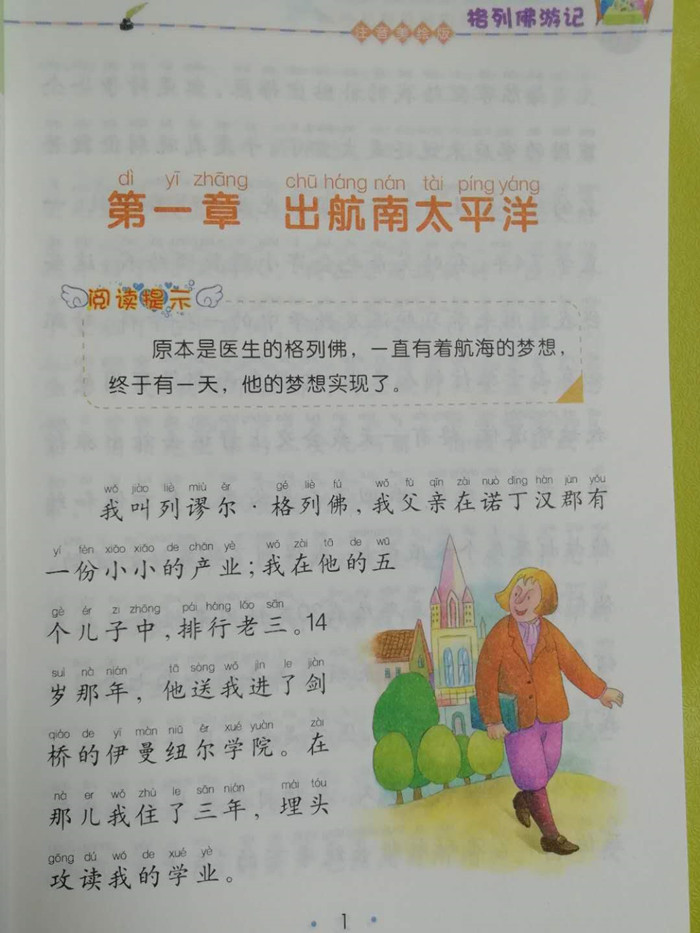 格列佛游记
注音彩绘版
dì yī zhāng chū háng nán tài píng yáng
第一章 出航南太平洋
阅读提示
原本是医生的格列佛，一直有着航海的梦想，
终于有一天，他的梦想实现了。
wǒ jiào liè miù ěr gé liè fú wǒ fù qīn zài nuò dīng hàn jùn yǒu
我叫列谬尔·格列佛，我父亲在诺丁汉郡有
yí fèn xiǎo xiǎo de chǎn yè wǒ zài tā de wǔ
一份小小的产业；我在他的五
gè ér zi zhōng pái háng lǎo sān
个儿子中，排行老三。14
suì nà nián tā sòng wǒ jìn le jiàn
岁那年，他送我进了剑
qiáo de yī màn niǔ ěr xué yuàn zài
桥的伊曼纽尔学院。在
nà er wǒ zhù le sān nián mái tóu
那儿我住了三年，埋头
gōng dú wǒ de xué yè
攻读我的学业。
1